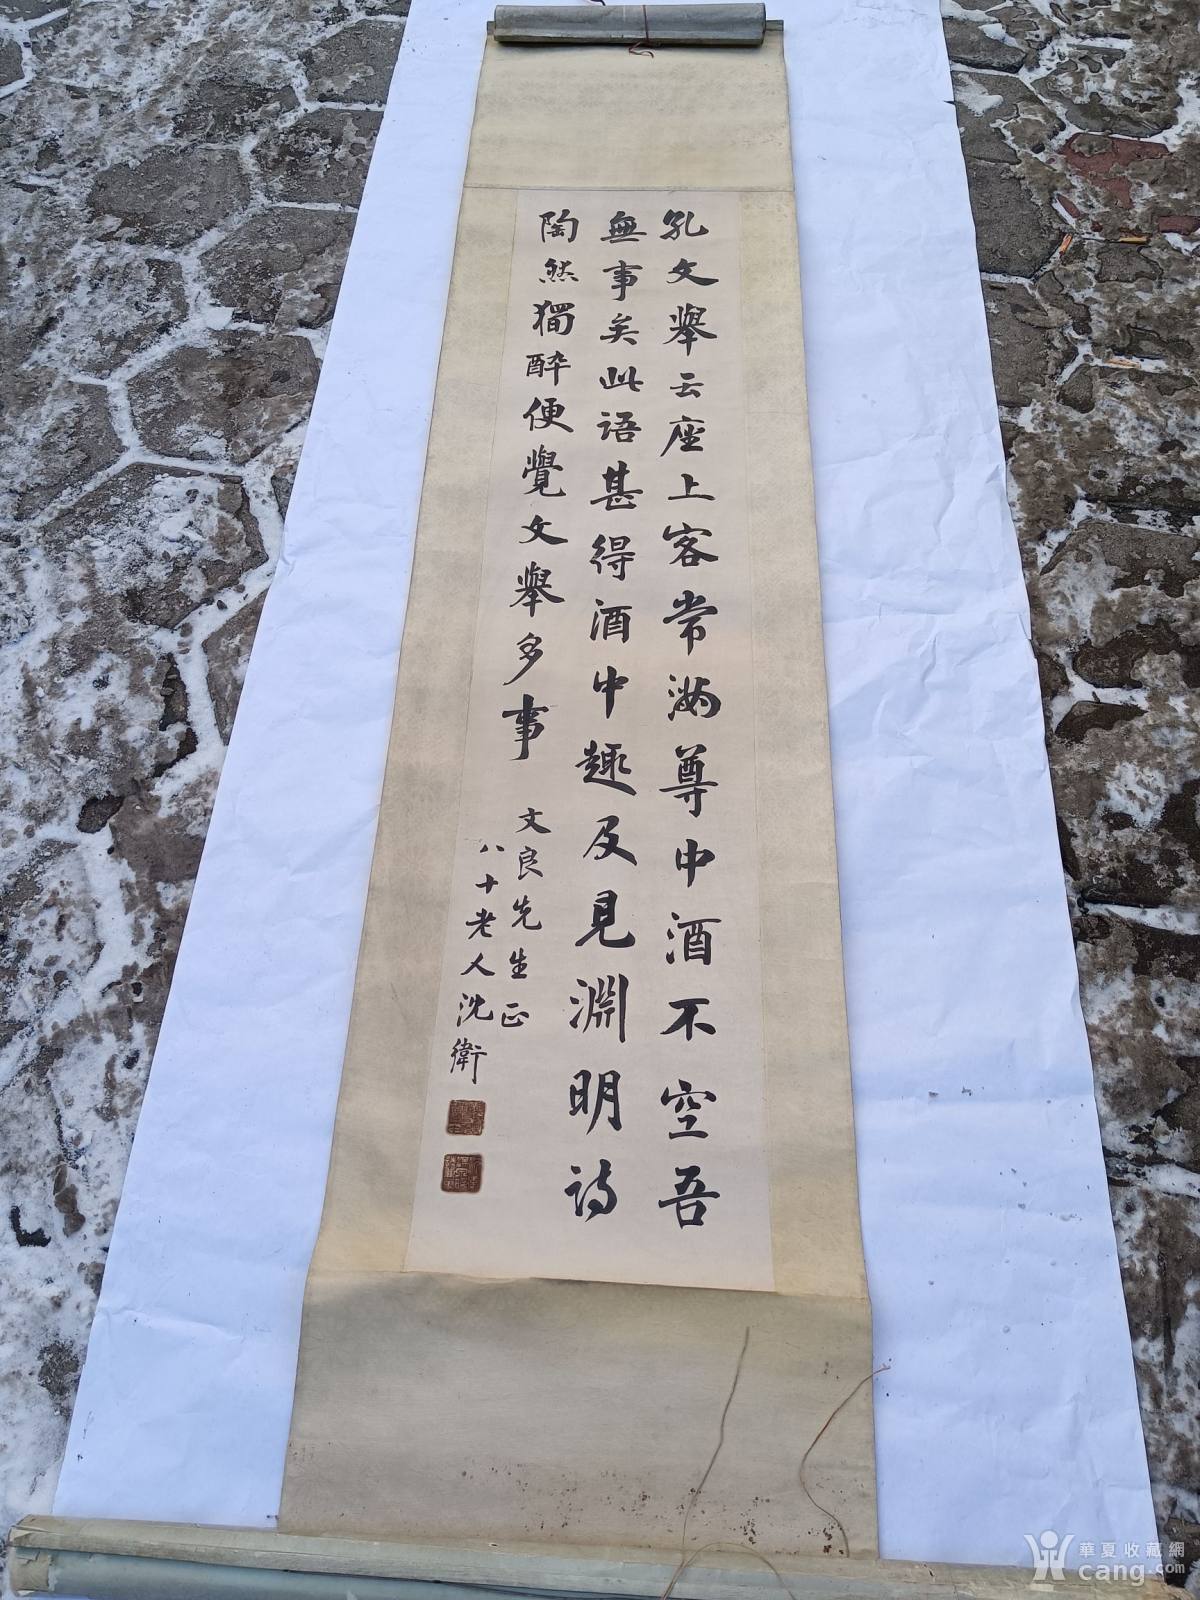 孔文舉云座上客常滿尊中酒不空吾
無事矣此語甚得酒中趣及見淵明詩
陶然獨醉便覺文舉多事
文良先生正
八十老人沈衛
華夏收藏網
cang.com